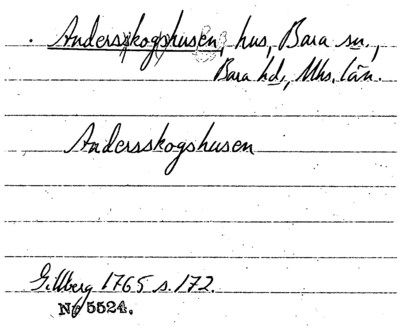 Andersskogshusen, hus, Bara sn.,
Bara hd., Mhs. län.
Andersskogshusen
Gillberg 1765 s. 172.
No 5524.